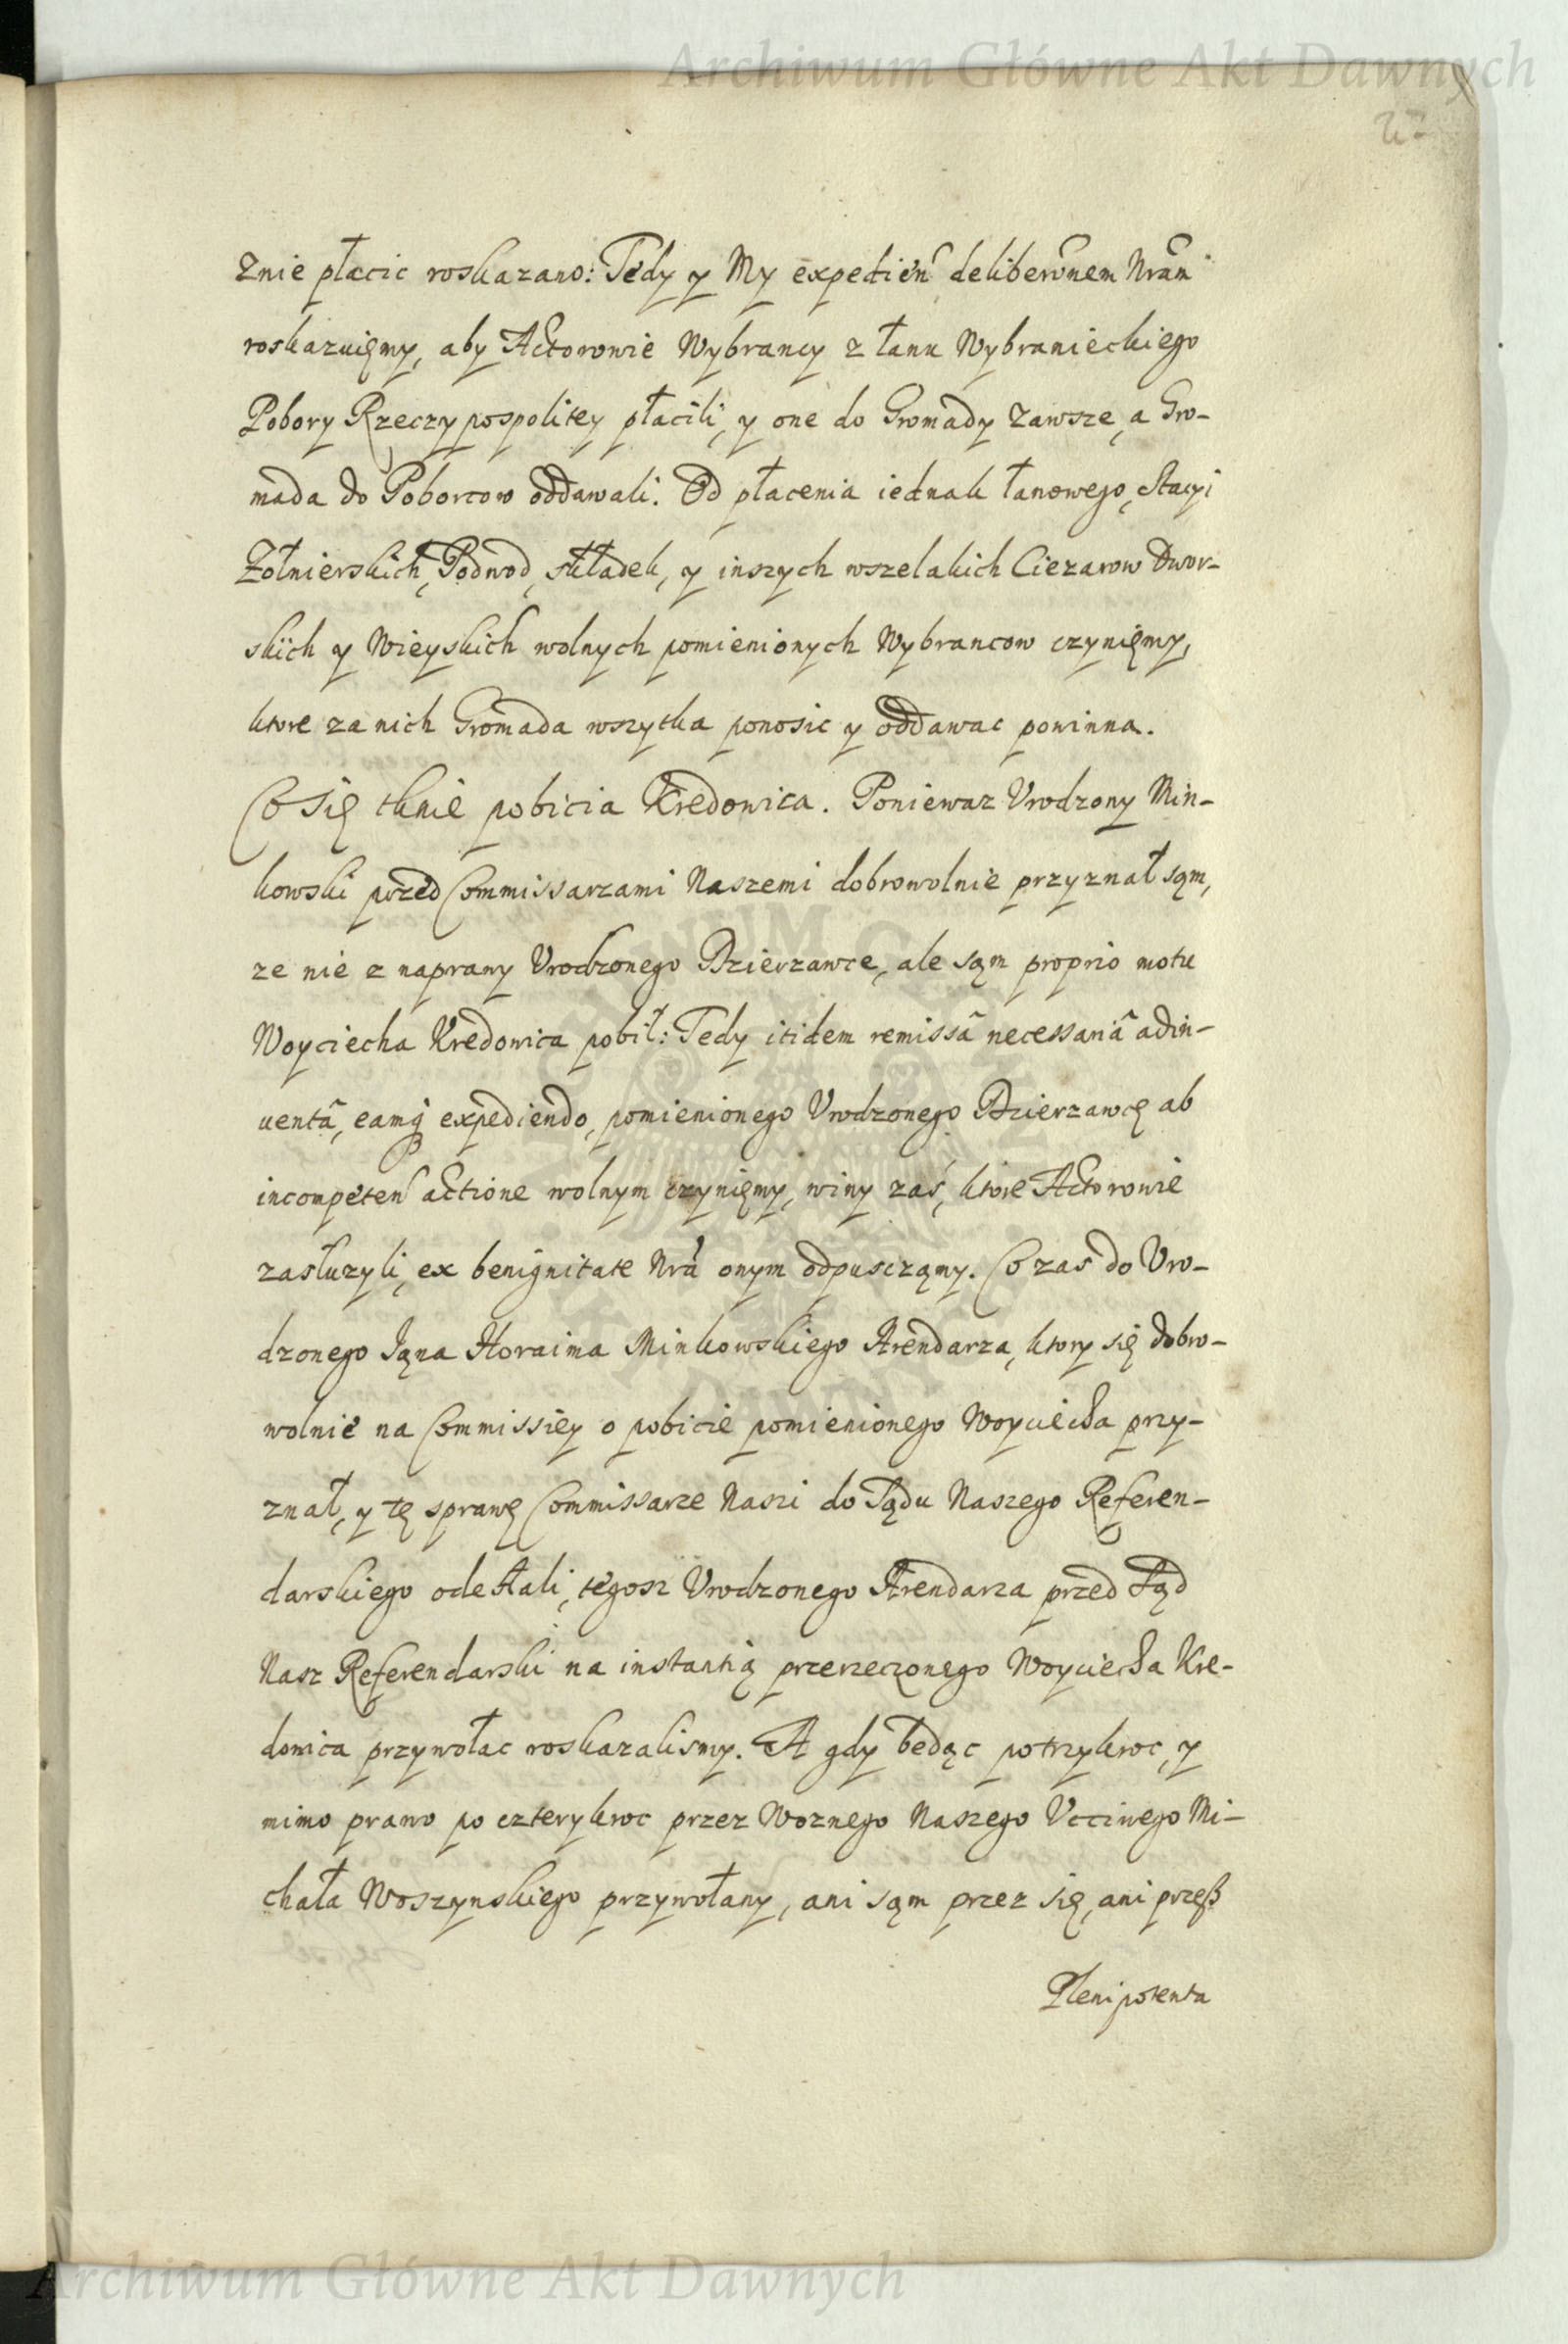 Archiwum Główne Akt Dawnych
znie płacic roskazano: Tedy y My expedień deliberõnem Nrãm
roskazuięmy, aby Actorowie Wybrancy z łanu Wybranieckiego
Pobory Rzeczypospolitey płacili, y one do Gromady zawsze, a Gro-
mada do Poborcow oddawali. Od płacenia iednak łanowego, Stacyi
Zołnierskich, Podwod, składek, y inszych wszelakich Ciezarow Dwor-
skich y Wieyskich wolnych pomienionych Wybrancow czynięmy,
ktore za nich Gromada wszytka ponosic y oddawac powinna.
Co się tknie pobicia Kredowica. Poniewaz Vrodzony Min-
kowski przed Commissarzami Naszemi dobrowolnie przyznał sąm,
ze nie z naprawy Vrodzonego Dzierzawce, ale sąm proprio motu
Woyciecha Kredowica pobił: Tedy itidem remissâ necessariâ adin-
uentâ, eamq́ expediendo, pomienionego Vrodzonego Dzierzawcę ab
incompeteń actione wolnym czynięmy, winy zaś, ktore Actorowie
zasłuzyli, ex benignitate Nrá onym odpuscząmy. Co zas do Vro-
dzonego Jąna Horaima Minkowskiego Arendarza, ktory się dobro-
wolnie na Commissiey o pobicie pomienionego Woyciecha przy-
znał, y tę sprawę Commissarze Naszi do Sądu Naszego Referen-
darskiego odesłali, tegosz Vrodzonego Arendarza przed Sąd
Nasz Referendarski na instantią przerzeczonego Woyciecha Kre-
dowica przywołac roskazalismy. A gdy będąc potrzykroc, y
mimo prawo po czterykroc przez Woznego Naszego Vcciwego Mi-
chała Woszynskiego przywołany, ani sąm przez się, ani przęß
Plenipotenta
Archiwum Główne Akt Dawnych